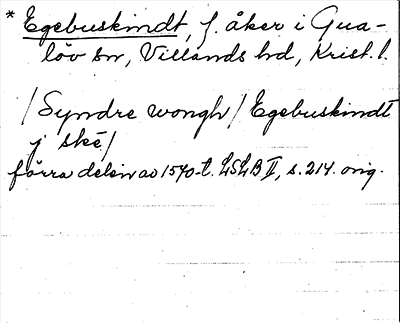 * Egebuskindt, f. åker i Gua-
löv sn, Villands hd, Krist. l.
/Syndre wongh/ Egebuskindt
j ské/
förra delen av 1570-t. LSLB II, s. 214. orig.